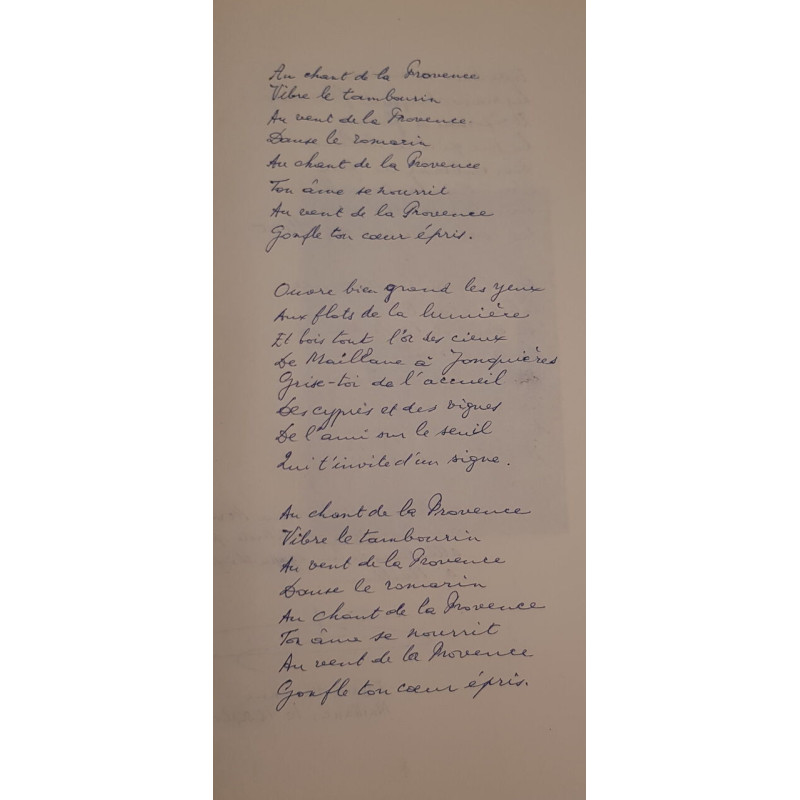 Au chant de la Provence
Vibre le tambourin
Au vent de la Provence.
Danse le romarin
Au chant de la Provence
Ton âme se nourrit
Au vent de la Provence
Gonfle ton cœur épris.
Ouvre bien grand les yeux
Aux flots de la lumière
Et bois tout l'or des cieux
De Maillane à Jonquières
Grise-toi de l'accueil
Des cyprès et des vignes
De l'ami sur le seuil
Qui t'invite d'un signe.
Au chant de la Provence
Vibre le tambourin
Au vent de la Provence
Danse le romarin
Au chant de la Provence
Ton âme se nourrit
Au vent de la Provence
Gonfle ton cœur épris.